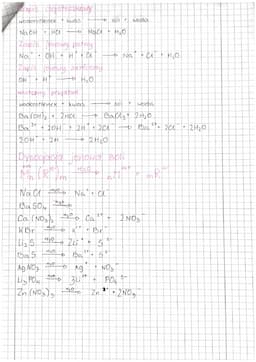 Zapis cząsteczkowy
wodorotlenek + kwas → sól + woda
NaOH + HCl → NaCl + H₂O
Zapis jonowy pełny
Na⁺ + OH⁻ + H⁺ + Cl⁻ → Na⁺ + Cl⁻ + H₂O
Zapis jonowy skrócony
OH⁻ + H⁺ → H₂O
przykład
wodorotlenek + kwas → sól + woda
Ba(OH)₂ + 2HCl → BaCl₂ + 2H₂O
Ba²⁺ + 2OH⁻ + 2H⁺ + 2Cl⁻ → Ba²⁺ + 2Cl⁻ + 2H₂O
2OH⁻ + 2H⁺ → 2H₂O
Dysocjacja jonowa soli
H₂O → nMᵐ⁺ + mRⁿ⁻
NaCl H₂O → Na⁺ + Cl⁻
BaSO₄ H₂O →
Ca(NO₃)₂ H₂O → Ca²⁺ + 2NO₃⁻
KBr H₂O → K⁺ + Br⁻
Li₂S H₂O → 2Li⁺ + S²⁻
BaS H₂O → Ba²⁺ + S²⁻
AgNO₃ H₂O → Ag⁺ + NO₃⁻
Li₃PO₄ H₂O → 3Li⁺ + PO₄³⁻
Zn(NO₃)₂ H₂O → Zn²⁺ + 2NO₃⁻